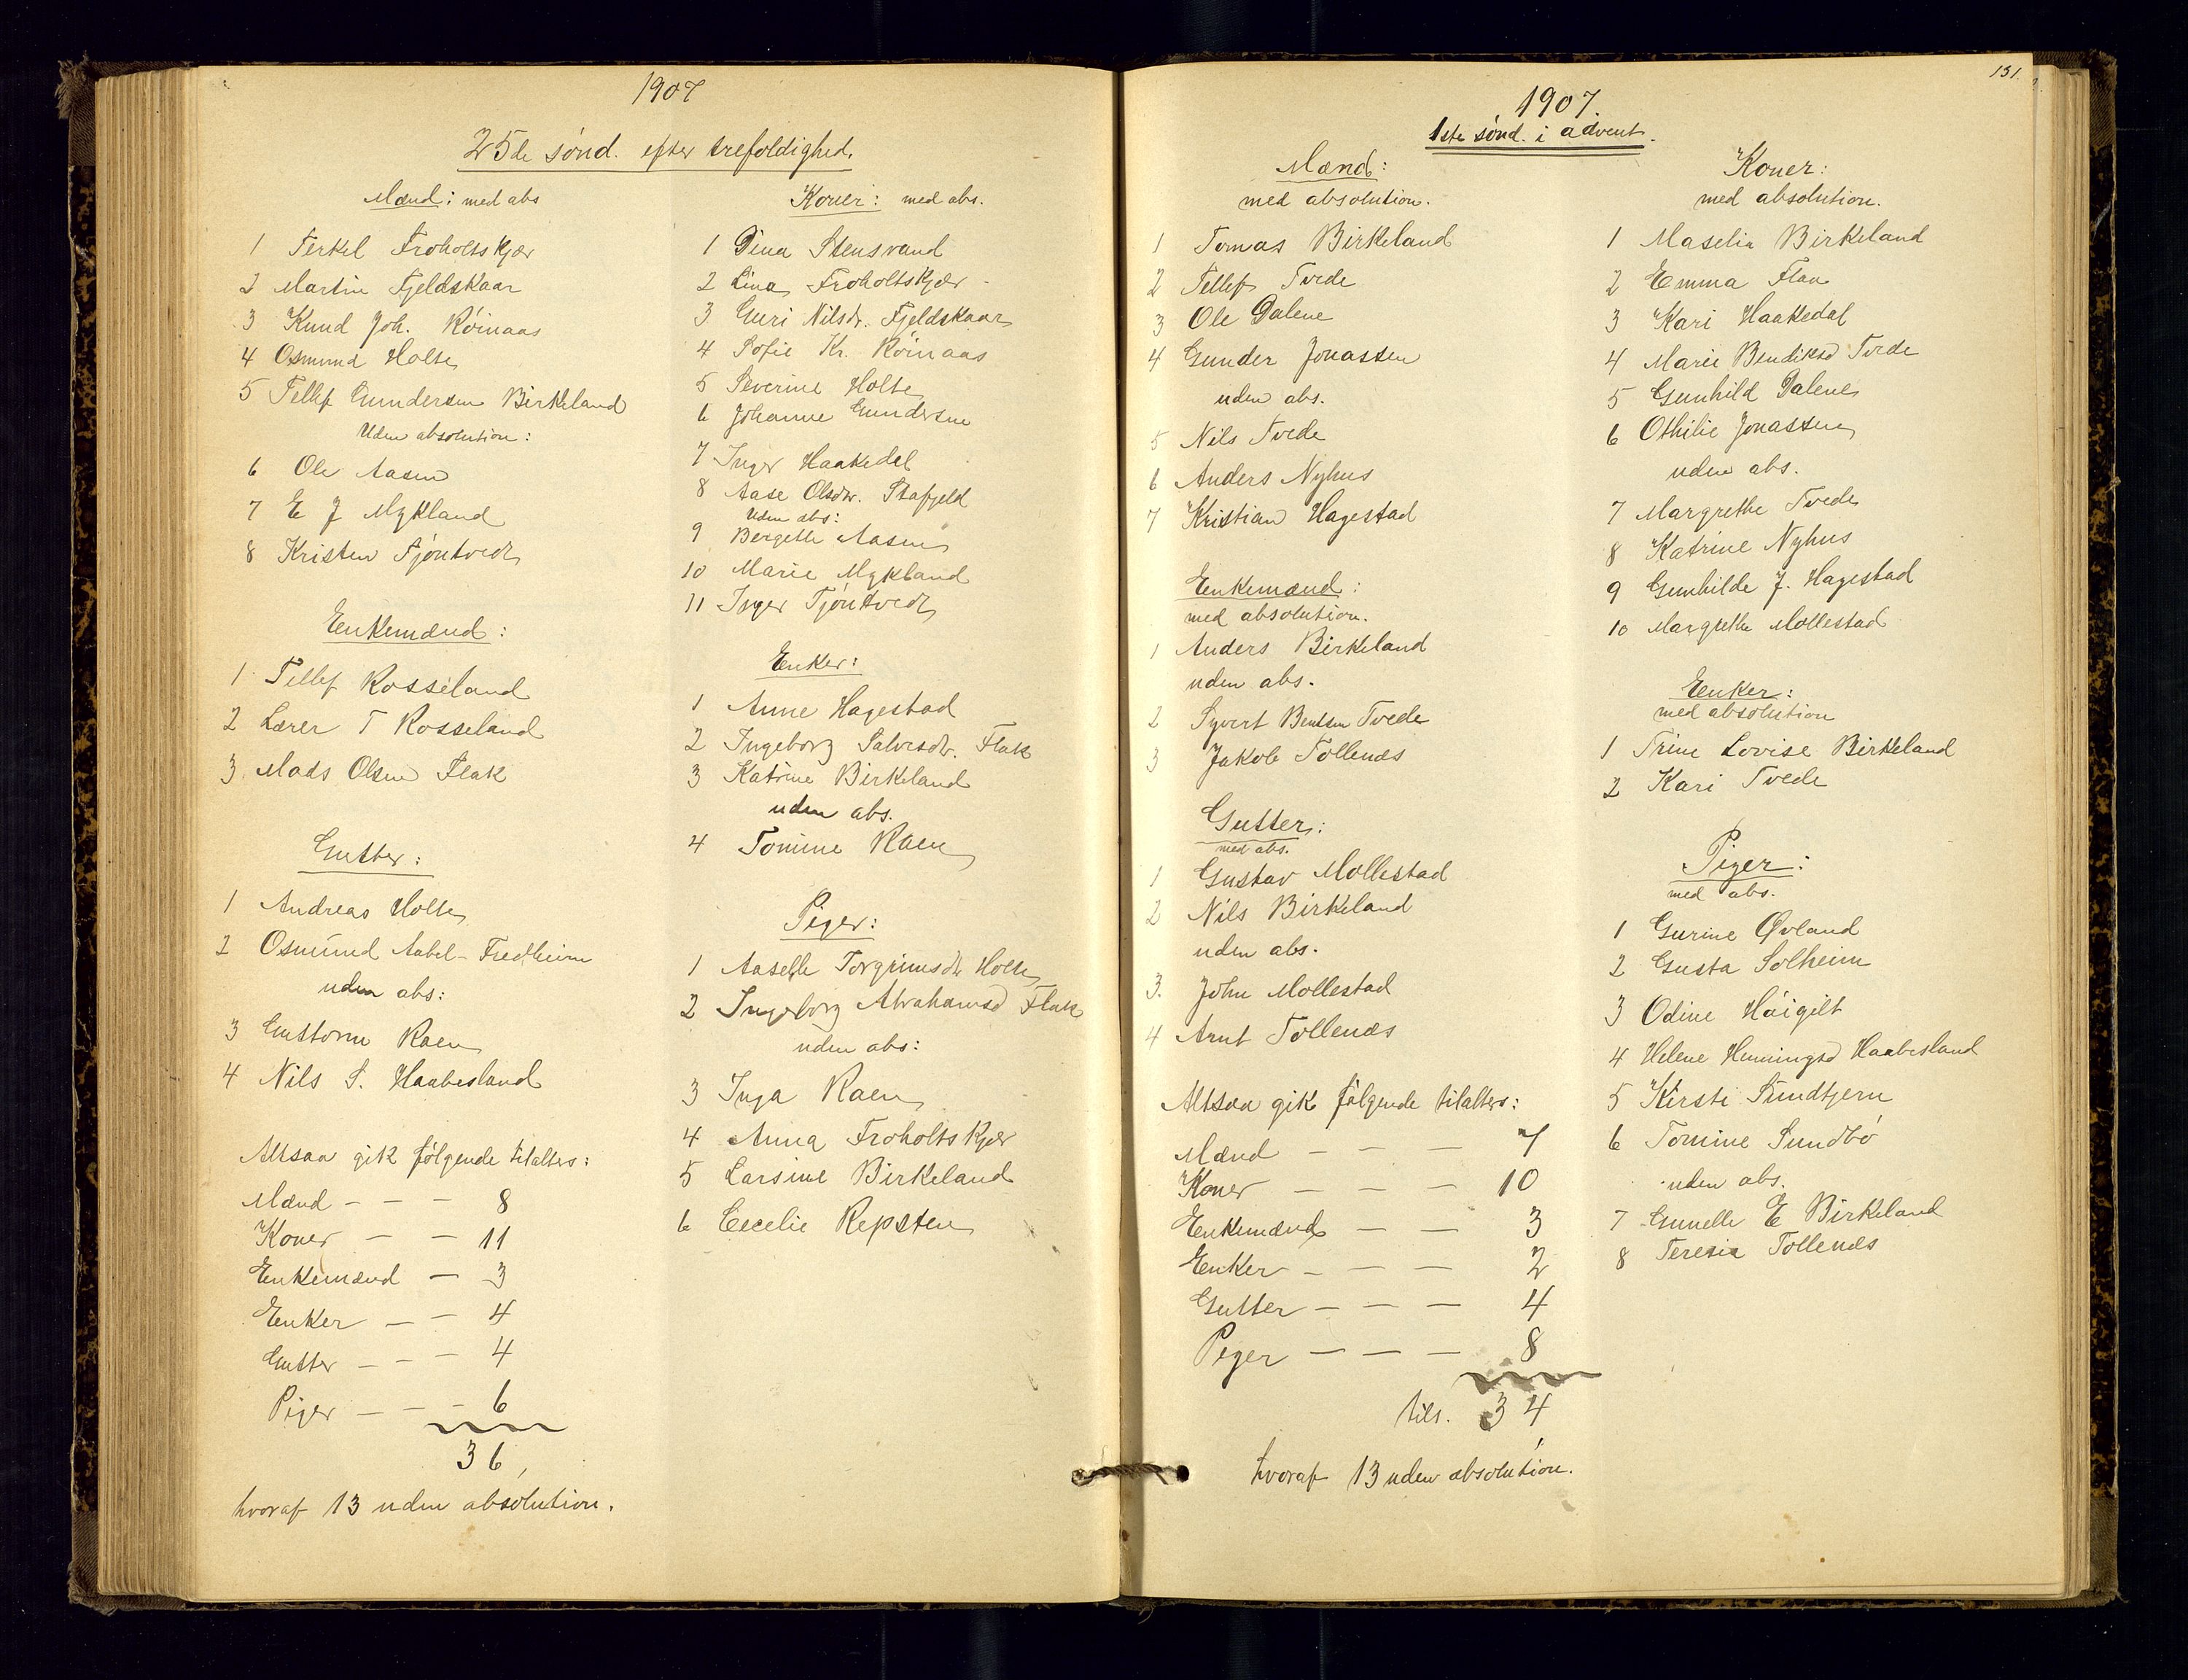 1907
25de sönd. efter trefoldighed.
Mænd: med abs
1 Terkel Froholtskjær
2 Martin Fjeldskaar
3 Knud Joh. Röinaas
4 Osmund Holte
5 Tellef Gundersen Birkeland
Uden absolution:
6 Ole Aasen
7 E J Mykland
8 Kristen Tjöntvedt
Enkemænd:
1 Tellef Rosseland
2 Lærer T Rosseland
3 Mads Olsen Flak
Gutter:
1 Andreas Holte
2 Osmund Aabel-Fredheim
uden abs:
3 Guttorm Raen
4 Nils S. Haabesland
Altsaa gik fölgende tilalters:
Mænd - - - 8
Koner - - 11
Enkemænd - 3
Enker - - 4
Gutter - - - 4
Piger - - - 6
36
hvoraf 13 uden absolution.
Koner: med abs.
1 Dina Stensvand
2 Lina Froholtskjær
3 Guri Nilsdr. Fjeldskaar
4 Sofie Kr. Röinaas
5 Severine Holte
6 Johanne Gundersen
7 Inger Haakedal
8 Aase Olsdr. Stafjeld
Uden abs:
9 Bergette Aasen
10 Marie Mykland
11 Inger Tjöntvedt
Enker:
1 Anne Hagestad
2 Ingeborg Salvesdr. Flak
3 Katrine Birkeland
uden abs.
4 Tomine Raen
Piger:
1 Aaselle Torgrimsdr Holte
2 Ingeborg Abrahamsd Flak
uden abs:
3 Inga Raen
4 Anna Froholtskjær
5 Larsine Birkeland
6 Cecelie Repsten
131.
1907.
1ste sönd. i advent.
Mænd:
med absolution.
1 Tomas Birkeland
2 Tellef Tvede
3 Ole Dalene
4 Gunder Jonassen
uden abs.
5 Nils Tvede
6 Anders Nyhus
7 Kristian Hagestad
Enkemænd:
med absolution.
1 Anders Birkeland
uden abs.
2 Syvert Bentsen Tvede
3 Jakob Tollenæs
Gutter:
med abs.
1 Gustav Mollestad
2 Nils Birkeland
uden abs.
3. John Mollestad
4 Arnt Tollenæs
Altsaa gik fölgende tilalters:
Mænd - - - 7
Koner - - - 10
Enkemænd - - 3
Enker - - - 2
Gutter - - - 4
Piger - - - 8
tils. 34
hvoraf 13 uden absolution.
Koner:
med absolution.
1 Maselia Birkeland
2 Emma Flaa
3 Kari Haakedal
4 Marie Bendiksd Tvede
5 Gunhild Dalene
6 Othilie Jonassen
uden abs.
7 Margrethe Tvede
8 Katrine Nyhus
9 Gunhilde J. Hagestad
10 Margrethe Mollestad
Enker:
med absolution
1 Trine Lovise Birkeland
2 Kari Tvede
Piger:
med abs.
1 Gurine Øvland
2 Gusta Solheim
3 Odine Höigilt
4 Helene Henningsd Haabesland
5 Kirsti Sundtjern
6 Tomine Sundbö
uden abs.
7 Gunelle E Birkeland
8 Teresia Tollenæs